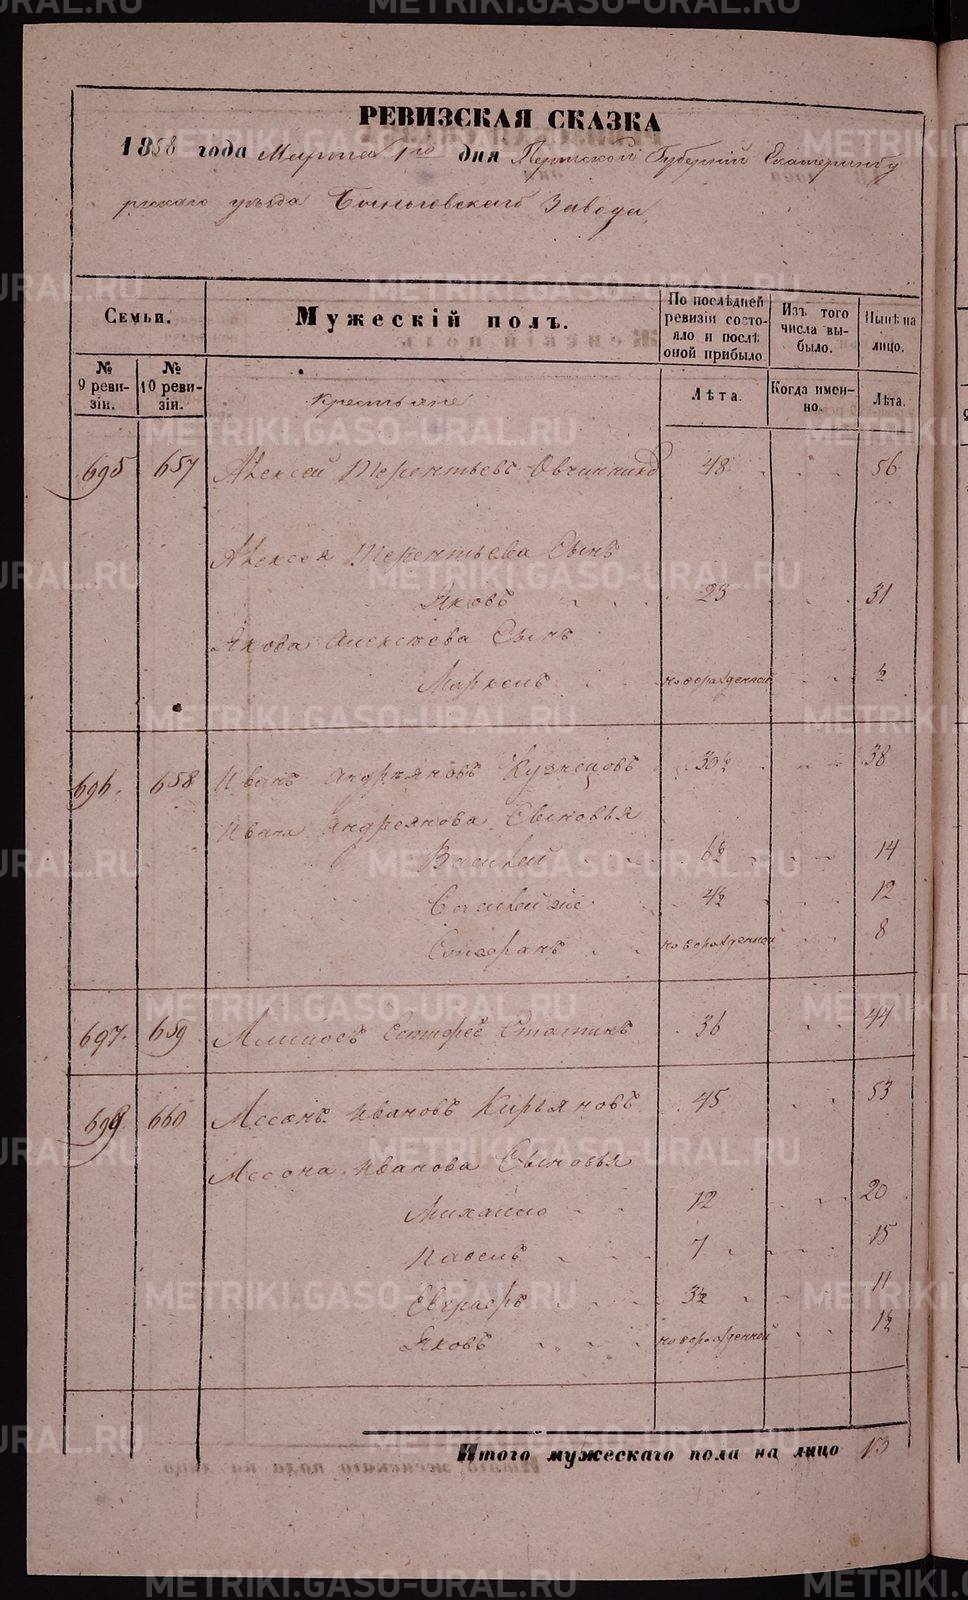 РЕВИЗСКАЯ СКАЗКА
1858 года Марта 1го дня Пермской Губерніи Екатеринбу
ргскаго уѣзда Быньговскаго Завода
Семьи.
Мужескій полъ.
По послѣдней ревизіи состояло и послѣ оной прибыло
Изъ того числа выбыло.
Нынѣ на лицо.
№ 9 ревизіи.
№ 10 ревизіи.
Лѣта.
Когда именно.
Лѣта.
Крестьяне
695 657 Алексей Терентьевъ Овчинников 48 56
Алексея Терентьева Сынъ
Яковъ 23 31
Якова Алексѣева Сынъ
Маркелъ новорожденной ½
696. 658 Иванъ Андреяновъ Кузнецовъ 30½ 38
Ивана Андреянова Сыновья
Василей 6½ 14
Василей же 4½ 12
Стефанъ новорожденной 8
697. 659 36 44
699 660 Ассонъ Ивановъ Кирьяновъ 45 53
Ассона Иванова Сыновья
Михайло 12 20
Павелъ 7 15
Евграфъ 3½ 11
Яковъ новорожденной 1½
Итого мужескаго пола на лицо 13
METRIKI.GASO-URAL.RU